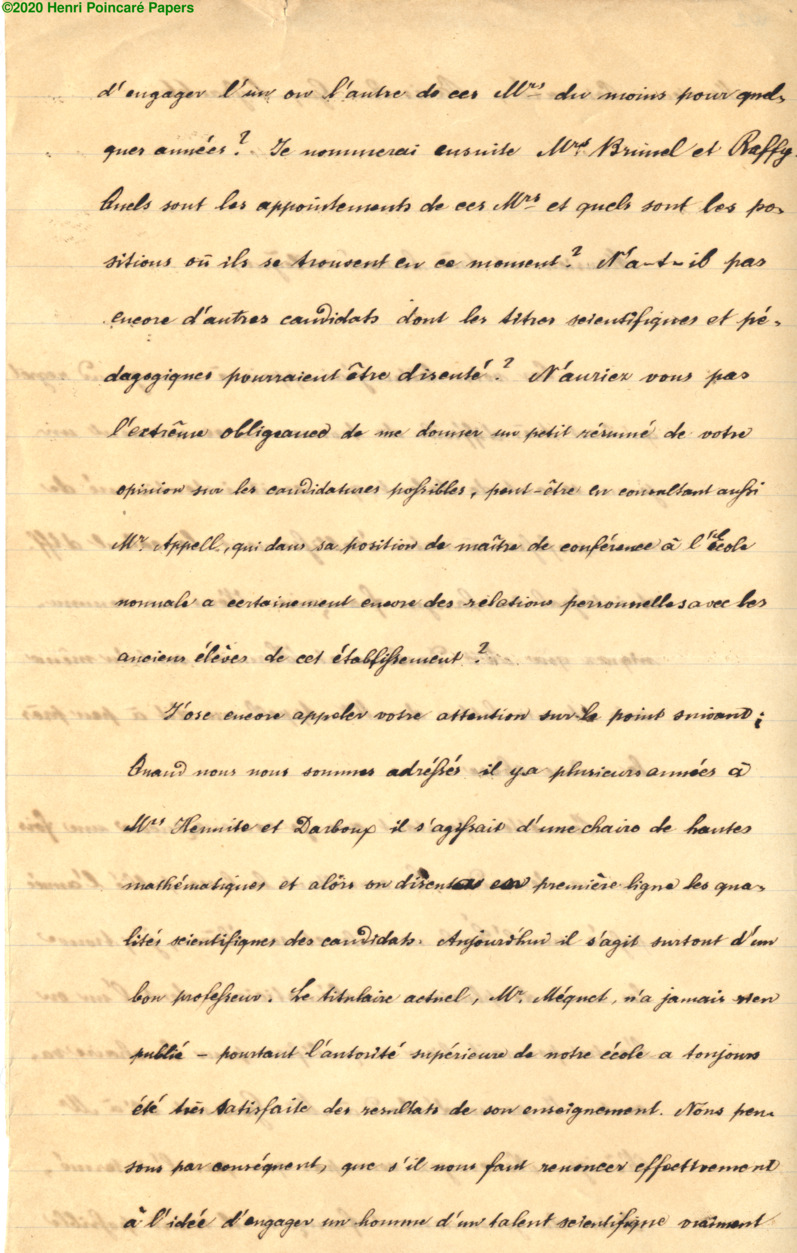 ©2020 Henri Poincaré Papers
d'engager l'un ou l'autre de ces Mrs du moins pour quel-
ques années? Je nommerai ensuite Mrs Brunel et Raffy.
Quels sont les appointements de ces Mrs et quels sont les po-
sitions où ils se trouvent en ce moment? N'a-t-il pas
encore d'autres candidats dont les titres scientifiques et pé-
dagogiques pourraient être discuté? N'auriez vous pas
l'extrême obligeance de me donner un petit résumé de votre
opinion sur les candidatures possibles, peut-être en consultant aussi
Mr. Appell, qui dans sa position de maître de conférence à l'école
normale a certainement encore des relations personnelles avec les
anciens élèves de cet établissement?
J'ose encore appeler votre attention sur le point suivant;
Quand nous nous sommes adréssés il y a plusieurs années à
Mrs Hermite et Darboux il s'agissait d'une chaire de hautes
mathématiques et alors on discutas en première ligne les qua-
lités scientifiques des candidats. Aujourd'hui il s'agit surtout d'un
bon professeur. Le titulaire actuel, Mr. Méquet, n'a jamais rien
publié – pourtant l'autorité supérieure de notre école a toujours
été très satisfaite des resultats de son enseignement. Nous pen-
sons par conséquent, que s'il nous faut renoncer effectivement
à l'idée d'engager un homme d'un talent scientifique vraiment